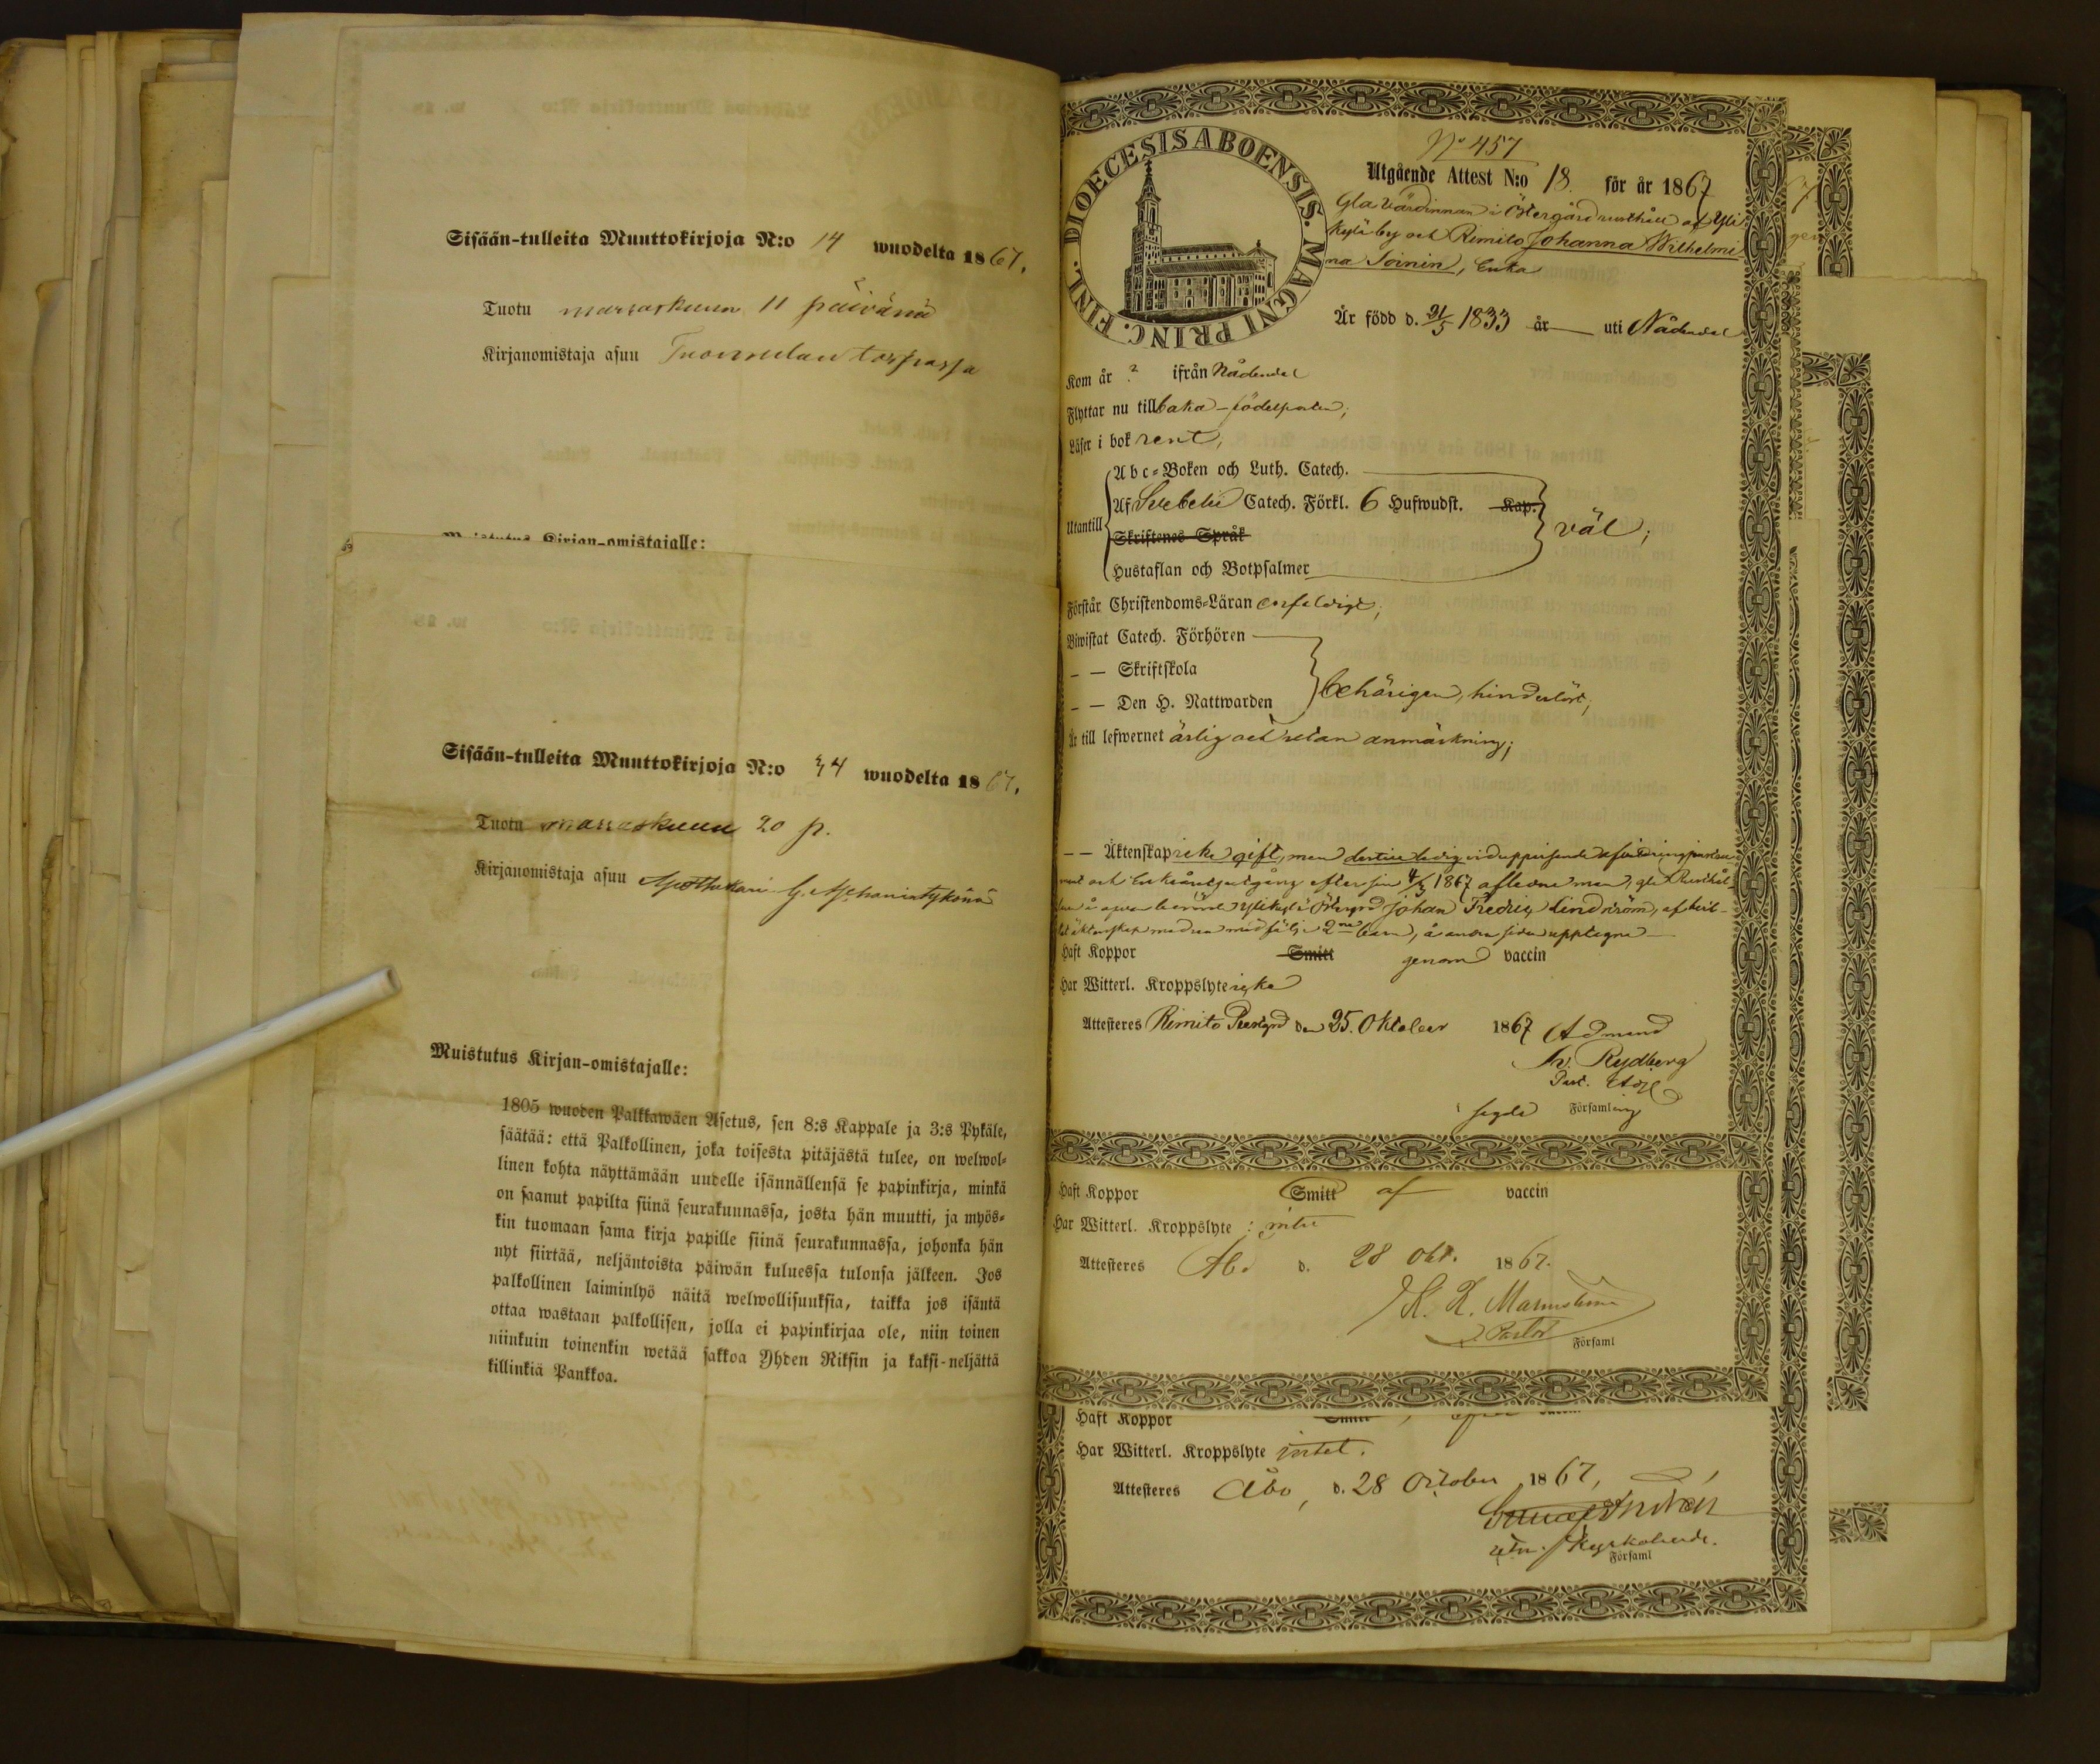 Sisään-tulleita Muuttokirjoja N:o 14 wuodelta 1867.
Tuotu marraskuun 11 päivänä
Kirjanomistaja asuu Tuomelan torpassa
Muistutus Kirjan-omistajalle:
Sisään-tulleita Muuttokirjoja N:o 34 wuodelta 1867.
Tuotu marraskuun 20 p.
Kirjanomistaja asuu Apothekari G.
Muistutus Kirjan-omistajalle:
1805 wuoden Palkkawäen Asetus, sen 8:s Kappale ja 3:s Pykäle,
säätää: että Palkollinen, joka toisesta pitäjästä tulee, on welwol-
linen kohta näyttämään uudelle isännällensä se papinkirja, minkä
on saanut papilta siinä seurakunnassa, josta hän muutti, ja myös-
kin tuomaan sama kirja papille siinä seurakunnassa, johonka hän
nyt siirtää, neljäntoista päiwän kuluessa tulonsa jälkeen. Jos
palkollinen laiminlyö näitä welwollisuuksia, taikka jos isäntä
ottaa wastaan palkollisen, jolla ei papinkirjaa ole, niin toinen
niinkuin toinenkin wetää sakkoa Yhden Riksin ja kaksi-neljättä
killinkiä Pankkoa.
DIOECESIS ABOENSIS. MAGNI PRINC. FINL.
No 457
Utgående Attest N:o 18. för år 1867
Gla Värdinnan i Östergård rusthåll af Yli
kylä by och Rimito Johanna Wilhelmi-
na Soinin, Enka
Är född d. 21/5 1833 år uti Nådendal
Kom år ? ifrån Nådendal
Flyttar nu tillbaka födelseorten;
Läser i bok rent,
Utantill
Abc-Boken och Luth. Catech.
Af Svebelii Catech. Förkl. 6 Hufwudst. Kap.
väl;
Skriftenes Språk
Hustaflan och Botpsalmer
Förstår Christendoms-Läran enfaldigt;
Biwistat Catech. Förhören
— — Skriftskola
— — Den H. Nattwarden
behörigen, hinderlöst;
Är till lefwernet ärlig och utan anmärkning;
— — Äktenskap icke gift, men
och efter sin 4/3 1867 aflidne man, gla Rusthål-
Östergrd Johan Fredrig Lindström, af
med sig 2ne barn, å andra sidan upptagne
Haft Koppor Smitt genom vaccin
Har Witterl. Kroppslyte icke
Attesteres Rimito Prestgrd den 25. Oktober 1867 Edmund
Fr. Rydberg
Past. Adj.
i sagde Församling
Haft Koppor Smitt af vaccin
Har Witterl. Kroppslyte: intet
Attesteres Åbo d. 28 Okt. 1867.
K. K.
Pastor
Församl
Haft Koppor Smitt
Har Witterl. Kroppslyte intet.
Attesteres Åbo, d. 28 October 1867,
Kyrkoherde.
Församl